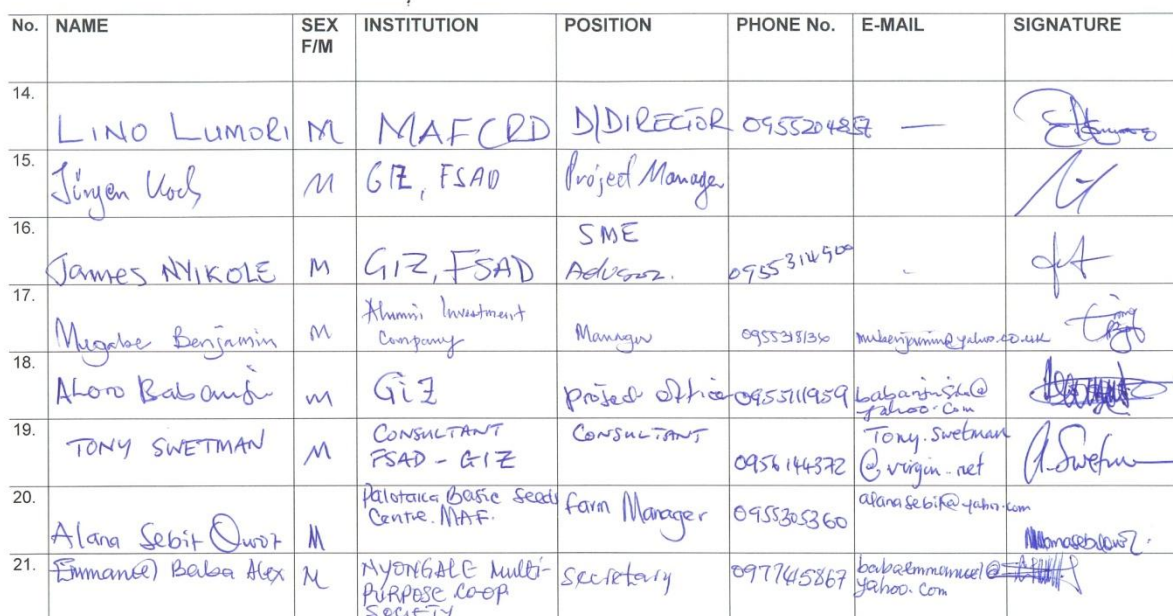 No. NAME SEX F/M INSTITUTION POSITION PHONE No. E-MAIL SIGNATURE
14. LINO LUMORI M MAFCRD D/DIRECTOR —
15. Jürgen Koch M GIZ, FSAD Project Manager
16. James NYIKOLE M GIZ, FSAD SME Advisor.
17. Mugabe Benjamin M Alumni Investment Company Manager
18. M GiZ project office 0955111959 yahoo.com
19. TONY SWETMAN M CONSULTANT FSAD - GIZ CONSULTANT 0956144372 Tony.Swetman@virgin.net A. Swetman
20. Alana Sebit M Palotaka Basic Seeds Centre. MAF. Farm Manager 0955305360
21. Emmanuel Baba Alex M NYONGALE Multi-PURPOSE CO-OP SOCIETY Secretary 0977415867 babaemmanuel@yahoo.com